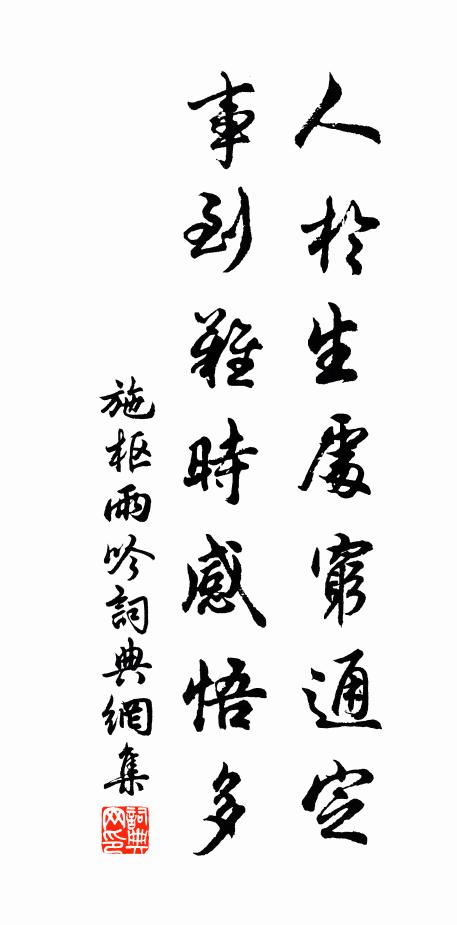 人於生處窮通定
事到難時感悟多
施枢雨吟詞典網集
詞典网印